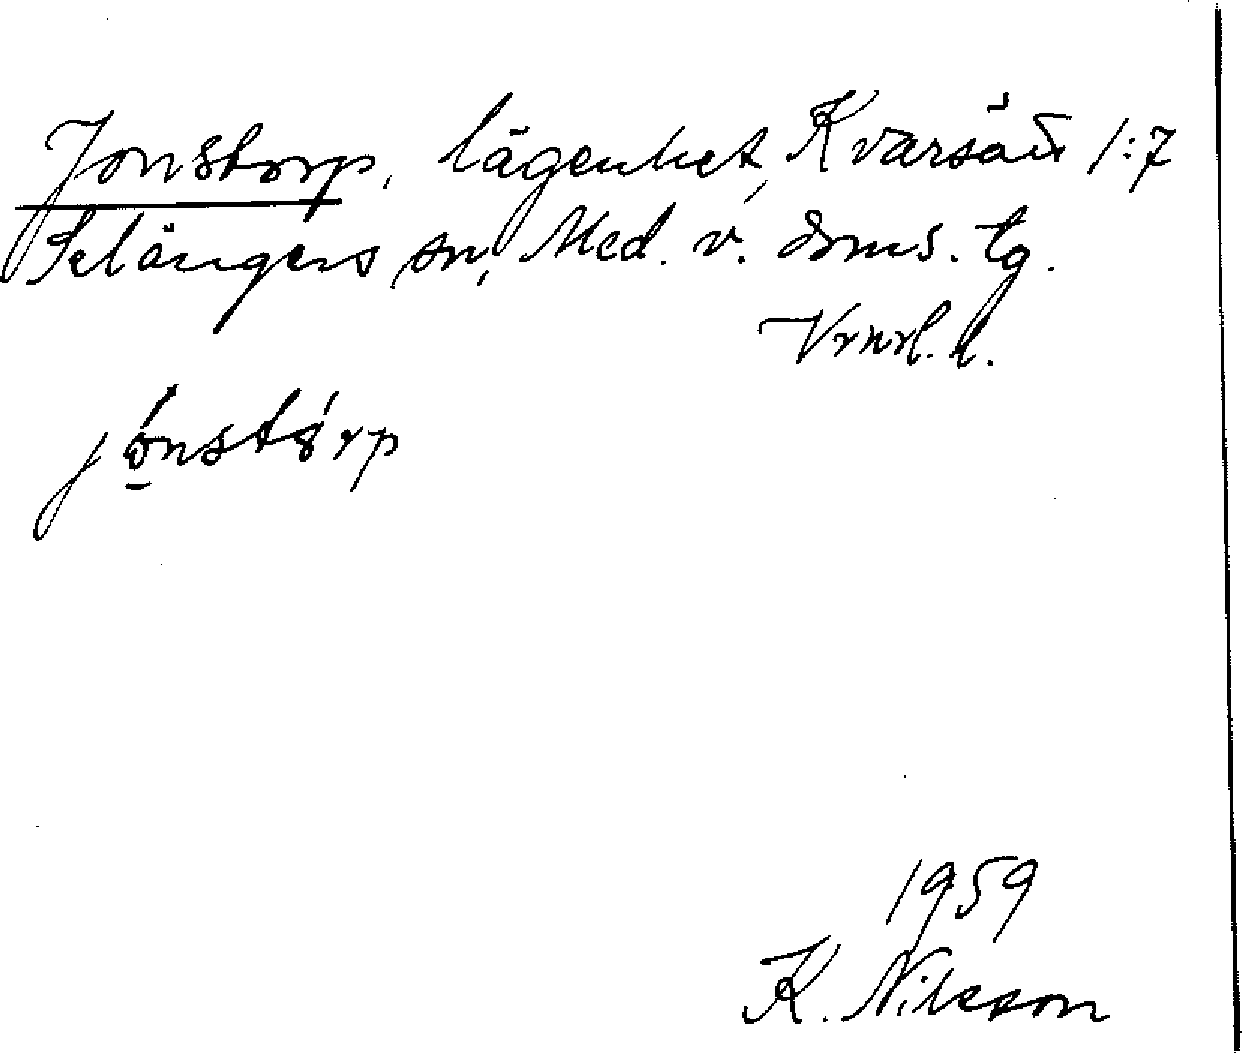 Jonstorp, lägenhet, Kvarsätt 1:7
Selångers sn, Med. v. doms. tg.
Vrnrl. l.
jónstórp
1959
K. Nilsson